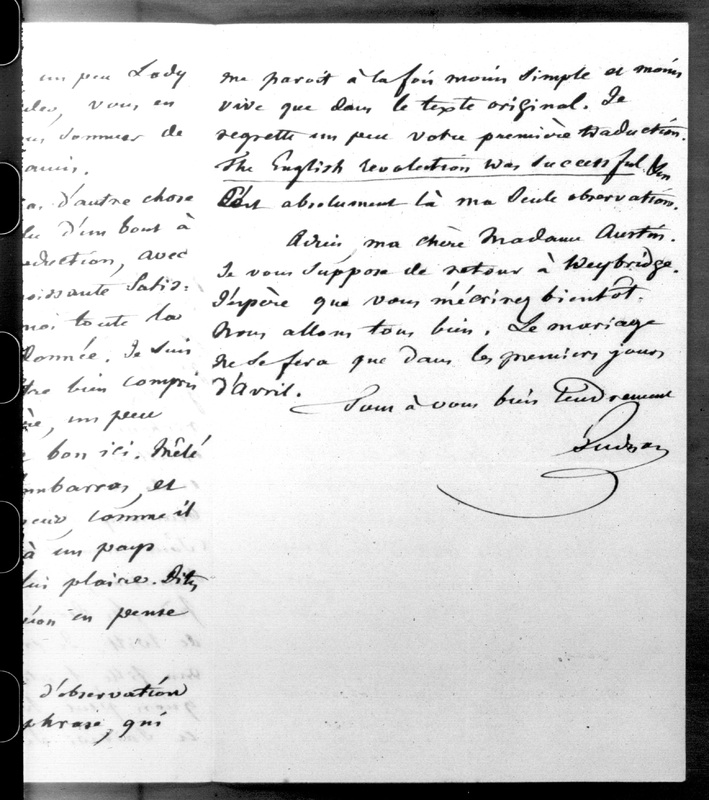 un peu Lady
vous en
sommes de
d'autre chose
d'un bout à
avec
Satis-
moi toute la
donnée. Je suis
bien compris
un peu
bon ici. Mêlé
embarras, et
comme il
à un pays
lui plaire. Dites
en pense
d'observation
phrase, qui
me paroit à la fois moins simple et moins
vive que dans le texte original. Je
regrette un peu votre première traduction.
The English revolution was successful.
C'est absolument là ma seule observation.
Adieu, ma chère Madame Austin.
Je vous suppose de retour à Weybridge.
J'espère que vous m'écrirez bientôt.
Nous allons tous bien. Le mariage
ne se fera que dans les premiers jours
d'Avril.
Tout à vous bien tendrement
Guizot